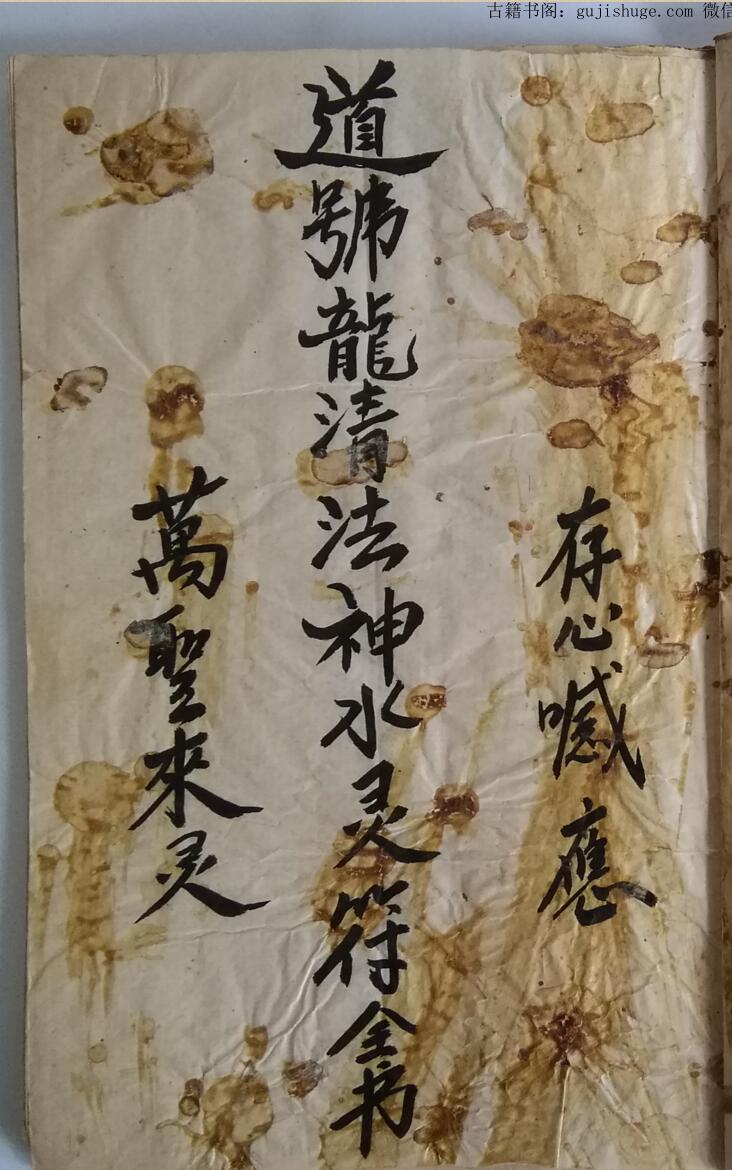 古籍书阁：gujishuge.com 微信
存心喊應
道號龍清法神水灵符全书
萬聖來灵